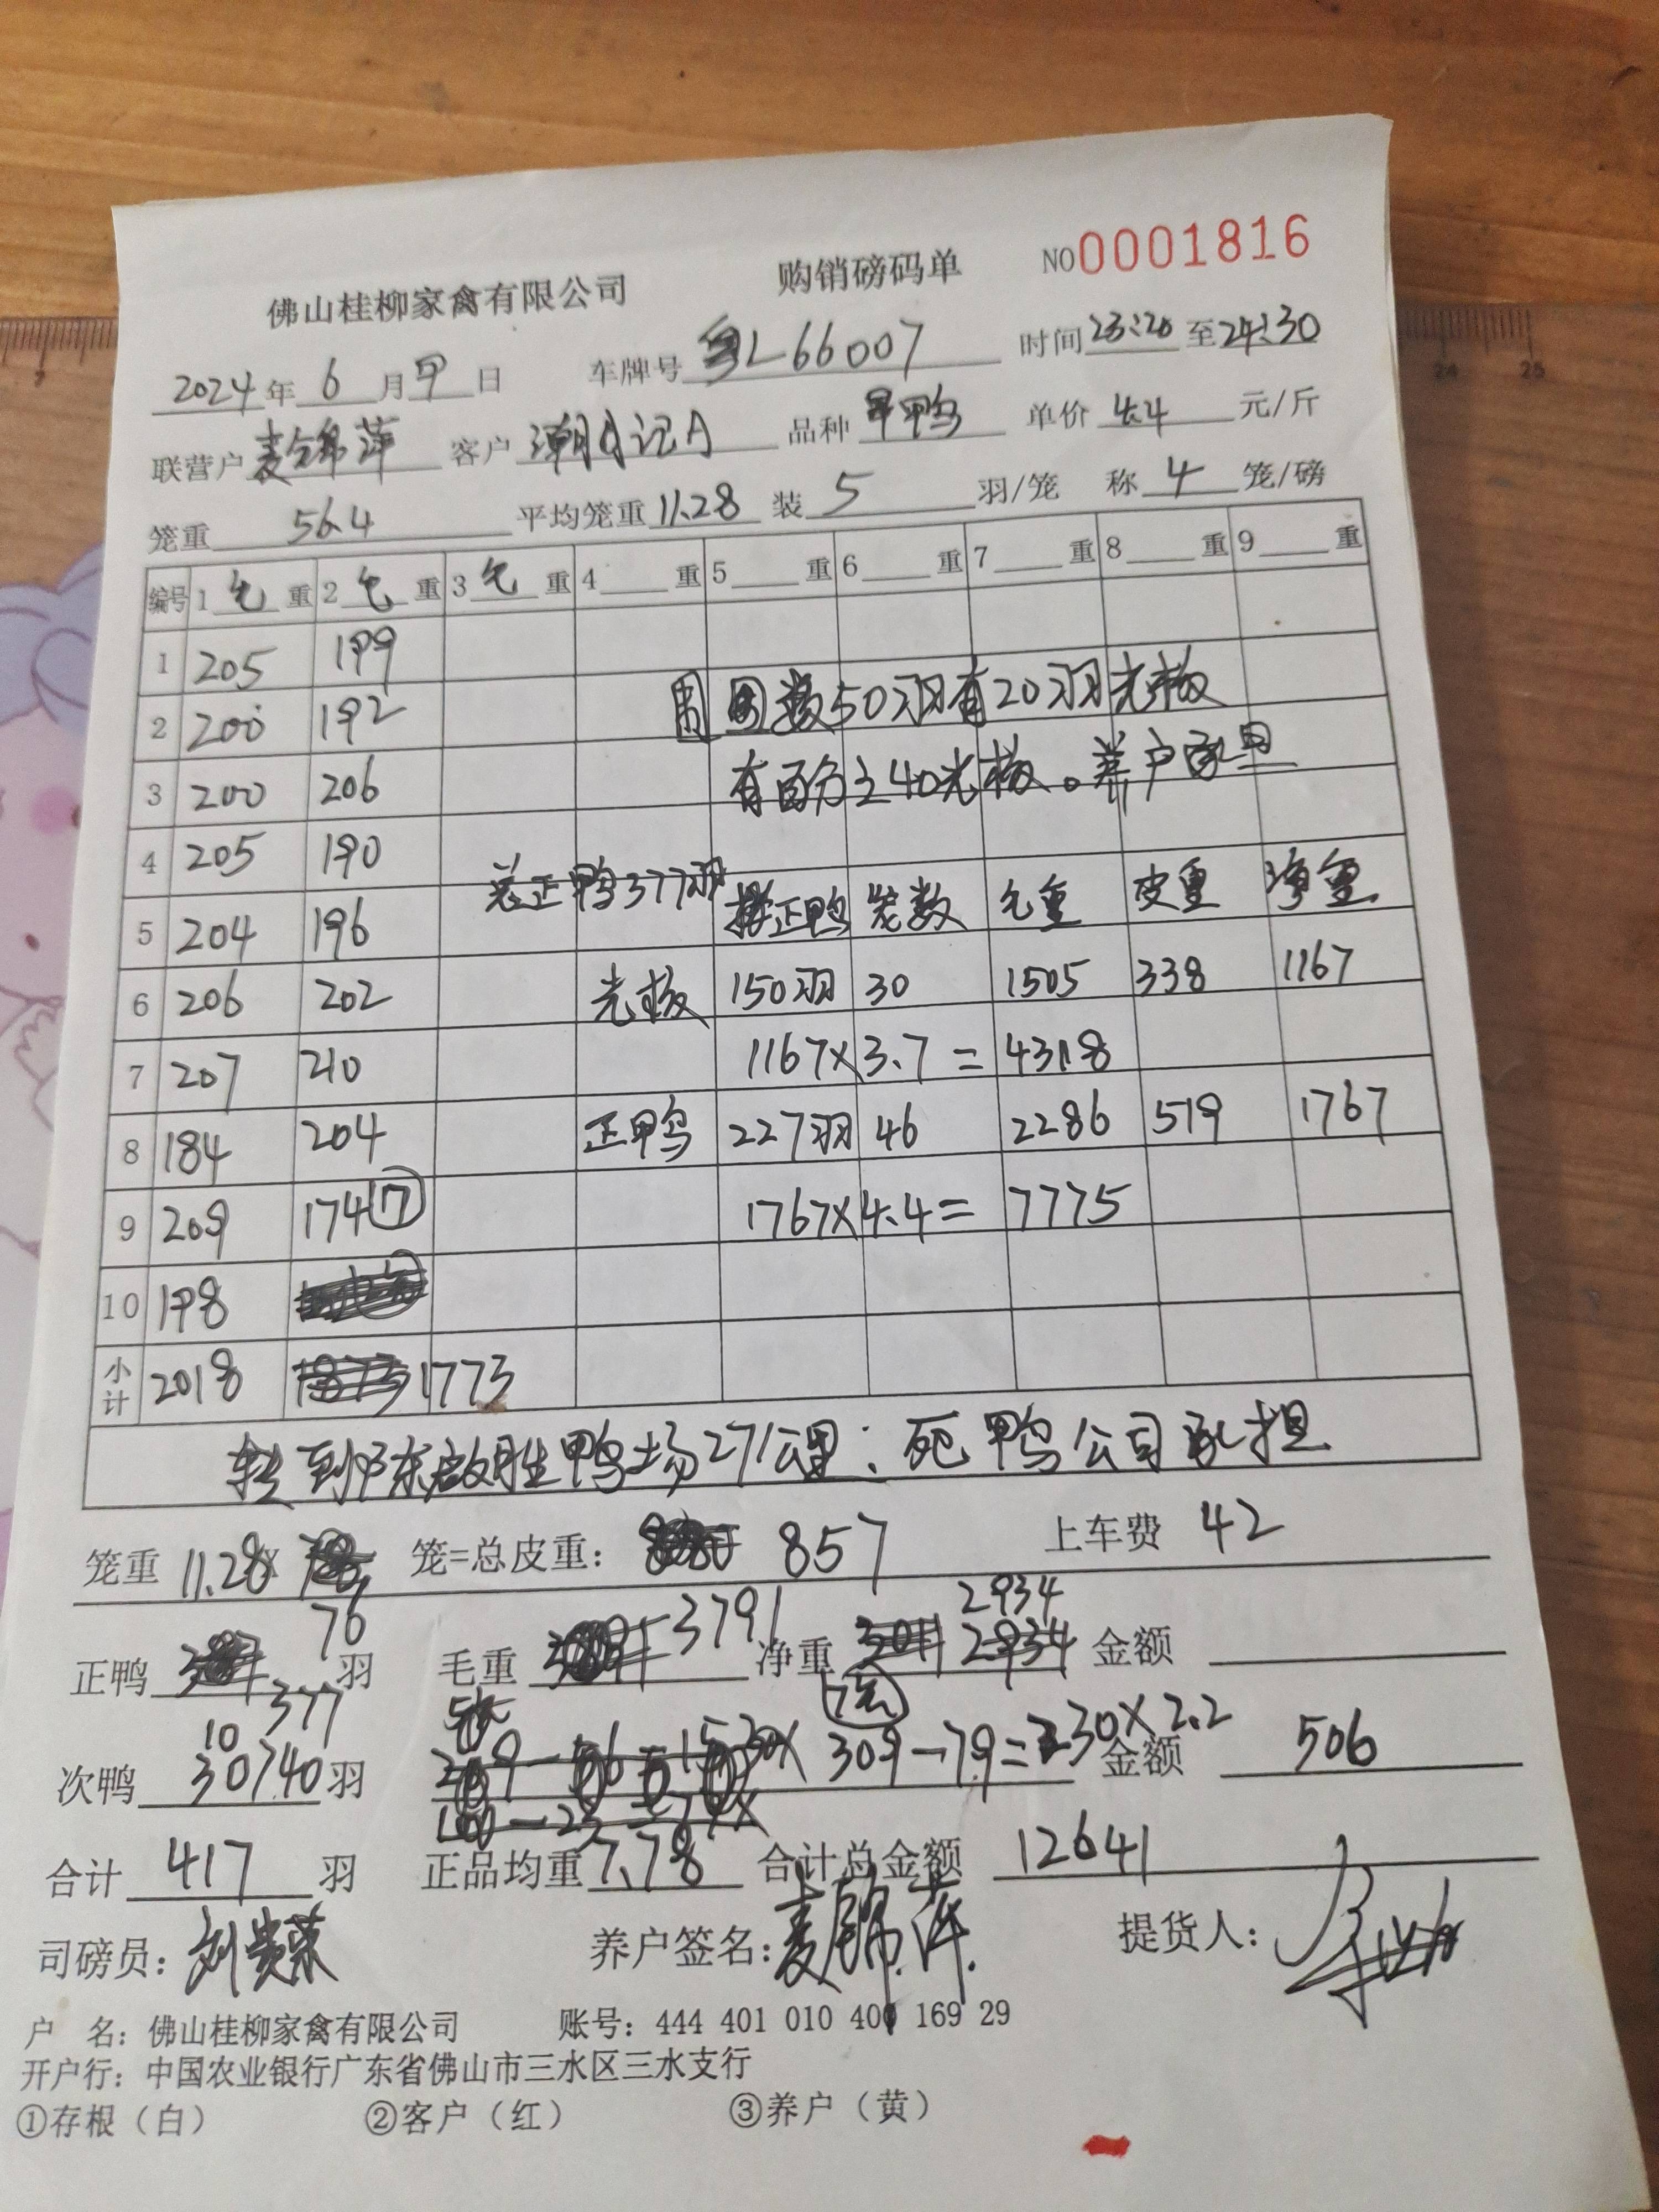 佛山桂柳家禽有限公司 购销磅码单 NO 0001816
2024年 6 月 9 日 车牌号 粤L66007 时间 23:20 至 24:30
联营户 麦锦萍 客户 潮记A 品种 甲鸭 单价 4.4 元/斤
笼重 56.4 平均笼重 11.28 装 5 羽/笼 称 4 笼/磅
编号 1 毛 重 2 毛 重 3 毛 重 4 重 5 重 6 重 7 重 8 重 9 重
1 205 199
2 200 192 数50羽有20羽光板
3 200 206 有百分之40光板。养户
4 205 190
总正鸭377羽 正鸭 笼数 毛重 皮重 净重
5 204 196
6 206 202 光板 150羽 30 1505 338 1167
7 207 210 1167×3.7=4318
8 184 204 正鸭 227羽 46 2286 519 1767
9 209 174 ⑦ 1767×4.4=7775
10 198
小计 2018 1773
转到 胜鸭场271公里:死鸭公司承担
笼重 11.28× 76 笼=总皮重: 857 上车费 42
正鸭 377 羽 毛重 3791 净重 2934 金额
次鸭 30/40 羽 309-79=230×2.2 金额 506
合计 417 羽 正品均重 7.78 合计总金额 12641
司磅员: 刘贵荣 养户签名: 麦锦萍 提货人:
户 名: 佛山桂柳家禽有限公司 账号: 444 401 010 400 169 29
开户行: 中国农业银行广东省佛山市三水区三水支行
①存根(白) ②客户(红) ③养户(黄)